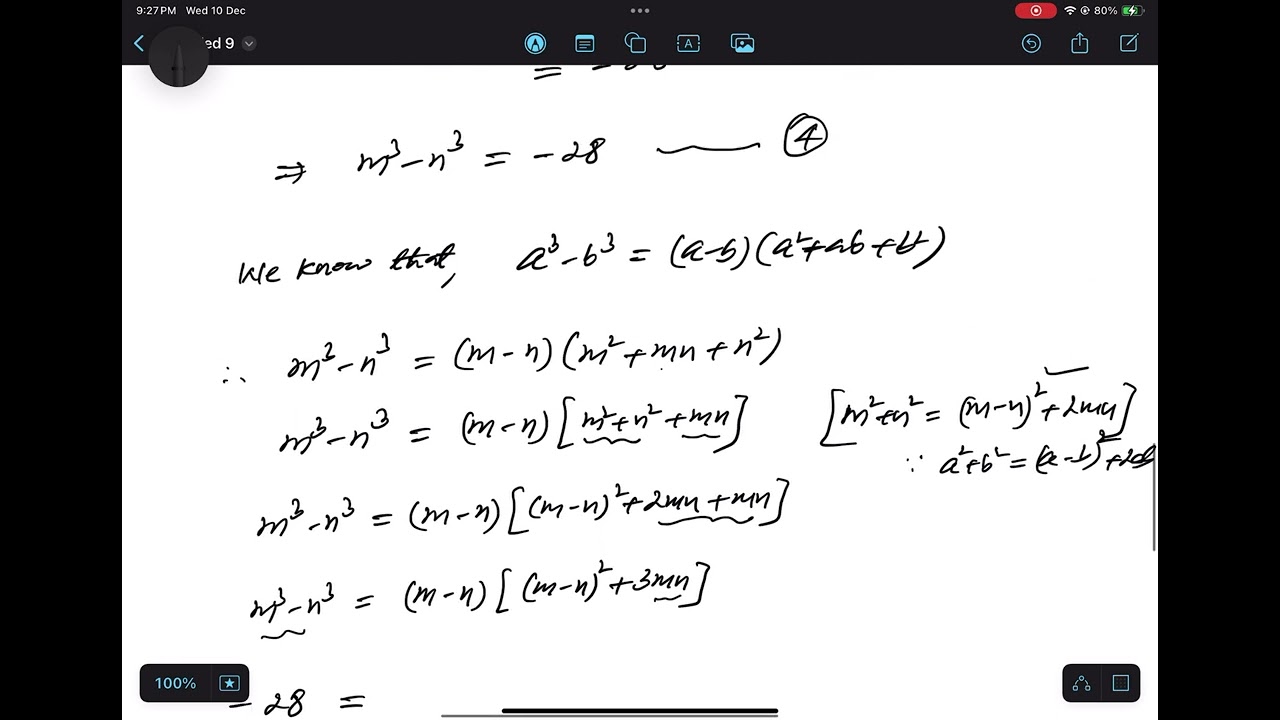 9:27 PM Wed 10 Dec
80%
ed 9
⇒ m³ - n³ = -28 —— ④
We know that, a³ - b³ = (a-b)(a²+ab+b²)
∴ m³ - n³ = (m-n)(m²+mn+n²)
m³ - n³ = (m-n)[m²+n²+mn] [m²+n² = (m-n)²+2mn]
∵ a²+b² = (a-b)²+2ab
m³ - n³ = (m-n)[(m-n)²+2mn+mn]
m³ - n³ = (m-n)[(m-n)²+3mn]
100%
-28 =